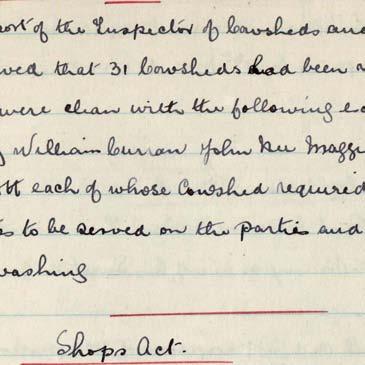 ort of the Inspector of Cowsheds and
ved that 31 Cowsheds had been
were clean with the following
William Curran John Nee Maggi
ott each of whose Cowshed required
es to be served on the parties and
washing
Shops Act.